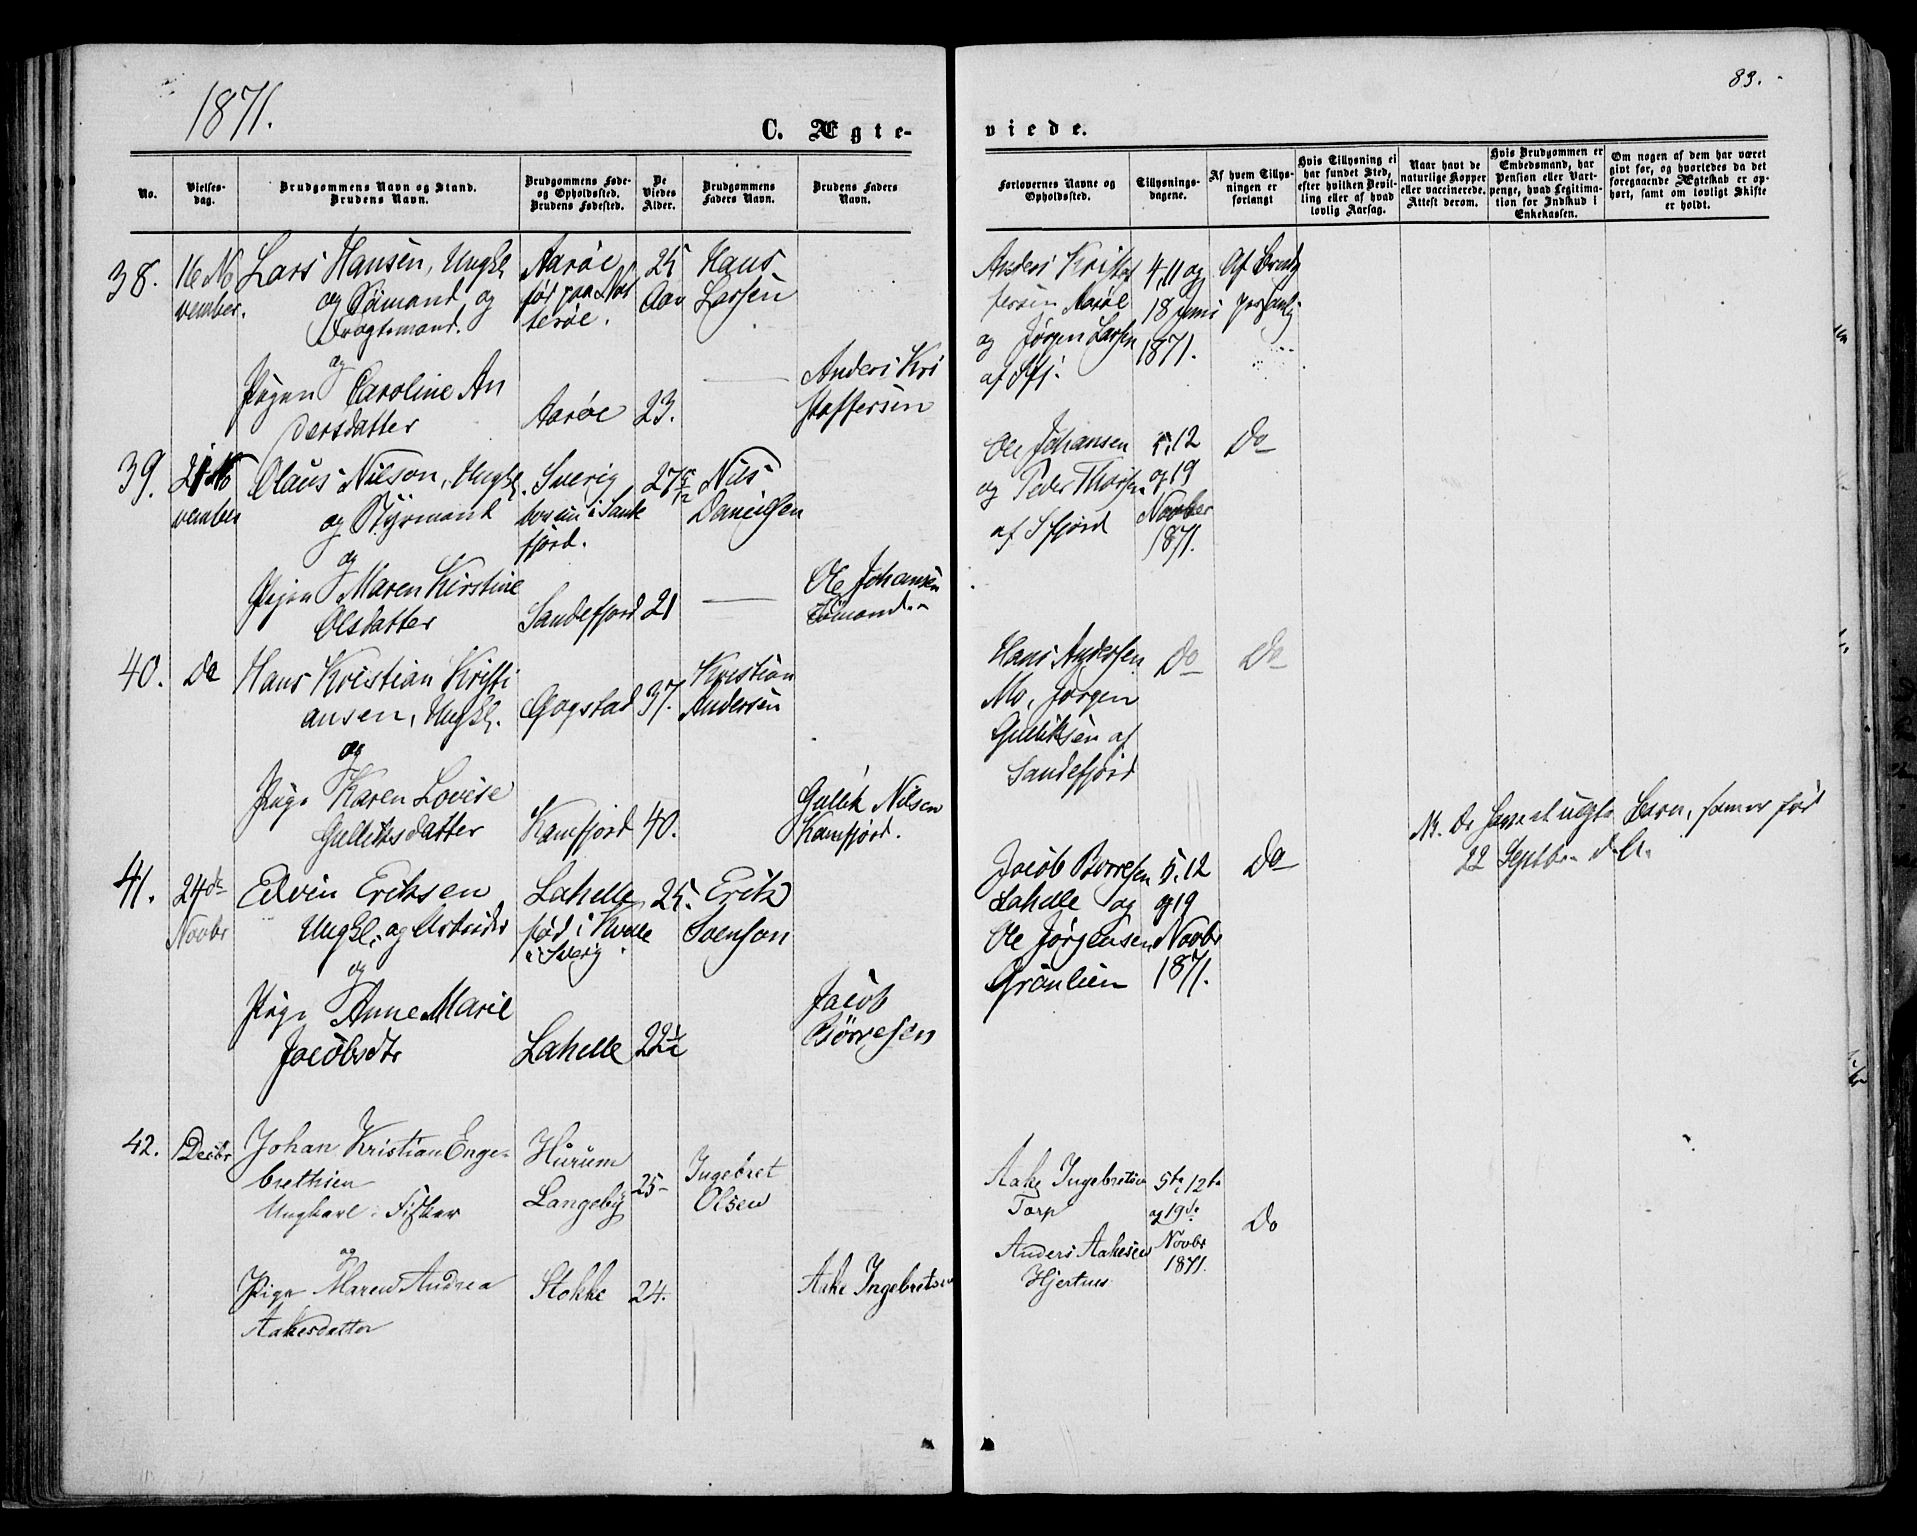 1871.
83.
C. Ægte-
viede.
No.
Vielses-
dag.
Brudgommens Navn og Stand.
Brudens Navn.
Brudgommens Føde-
og Opholdssted.
Brudens Fødested.
De
Viedes
Alder.
Brudgommens
Faders Navn.
Brudens Faders
Navn.
Forlovernes Navne og
Opholdssted.
Tillysnings-
dagene.
Af hvem Tillys-
ningen er
forlangt
Hvis Tillysning ei
har fundet Sted,
efter hvilken Bevil-
ling eller af hvad
lovlig Aarsag.
Naar havt de
naturlige Kopper
eller vaccinerede.
Attest derom.
Hvis Brudgommen er
Embedsmand, har
Pension eller Vart-
penge, hvad Legitima-
tion for Indskud i
Enkekassen.
Om nogen af dem har været
givt før, og hvorledes da det
foregaaende Ægteskab er op-
hørt, samt om lovligt Skifte
er holdt.
38.
16 No
vember.
Lars Hansen, Ungkl
og Sømand og
Dragtsmand.
og
Pigen Caroline An
dersdatter
Aarøe
fød paa Nøt
terøe.
Aarøe
25
Aar
23.
Hans
Larsen
Anders Kri
stoffersen
Anders Kristof
fersen Aarøe
og Jørgen Larsen
af Sfj.
4, 11 og
18 Juni
1871.
Af Brudg
personlig
39.
21 No
vember
Olaus Nilson, Ungkl.
og Styrmand
og
Pigen Maren Kirstine
Olsdatter
Sverig
boende i Sande
fjord.
Sandefjord
27 5/12
21
Nils
Danielsen
Ole Johansen
Sømand
Ole Johansen
og Peder Thorsen
af Sfjord
5, 12
og 19
Novber
1871.
Do
40.
Do
Hans Kristian Kristi
ansen, Ungkl.
og
Pige Karen Lovise
Gulliksdatter
Gogstad
Kamfjord
37.
40.
Kristian
Andersen
Gullik Nilsen
Kamfjord.
Hans Andersen
Mo, Jørgen
Gulliksen af
Sandefjord
Do
Do
NB. De have et uægte Barn, som er fød
22 Septbr d. A.
41.
24de
Novbr
Edvin Eriksen
Ungkl. og Arbeider
og
Pige Anne Marie
Jacobsdtr
Lahelle
fød i Kville
i Sverig
Lahelle
25.
22 1/2
Erik
Svenson
Jacob
Børresen
Jacob Børresen
Lahelle og
Ole Jørgensen
Grønlien
5, 12
og 19
Novbr
1871.
Do
42.
1 Decbr
Johan Kristian Enge-
brethsen
Ungkarl, Fisker
og
Pige Maren Andrea
Aakesdatter
Hurum
Langeby
Stokke
25
24.
Ingebret
Olsen
Aake Ingebretsen
Aake Ingebretsen
Torp
Anders Aakesen
Hjertnes
5te, 12te
og 19de
Novbr
1871.
Do